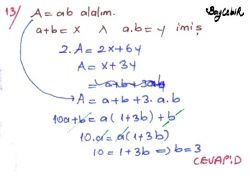 13/ A = ab alalım.
a+b = x ∧ a.b = y imiş
2.A = 2x + 6y
A = x + 3y
A = a+b + 3.a.b
10a + b = a(1+3b) + b
10.a = a(1+3b)
10 = 1+3b => b = 3
CEVAP: D